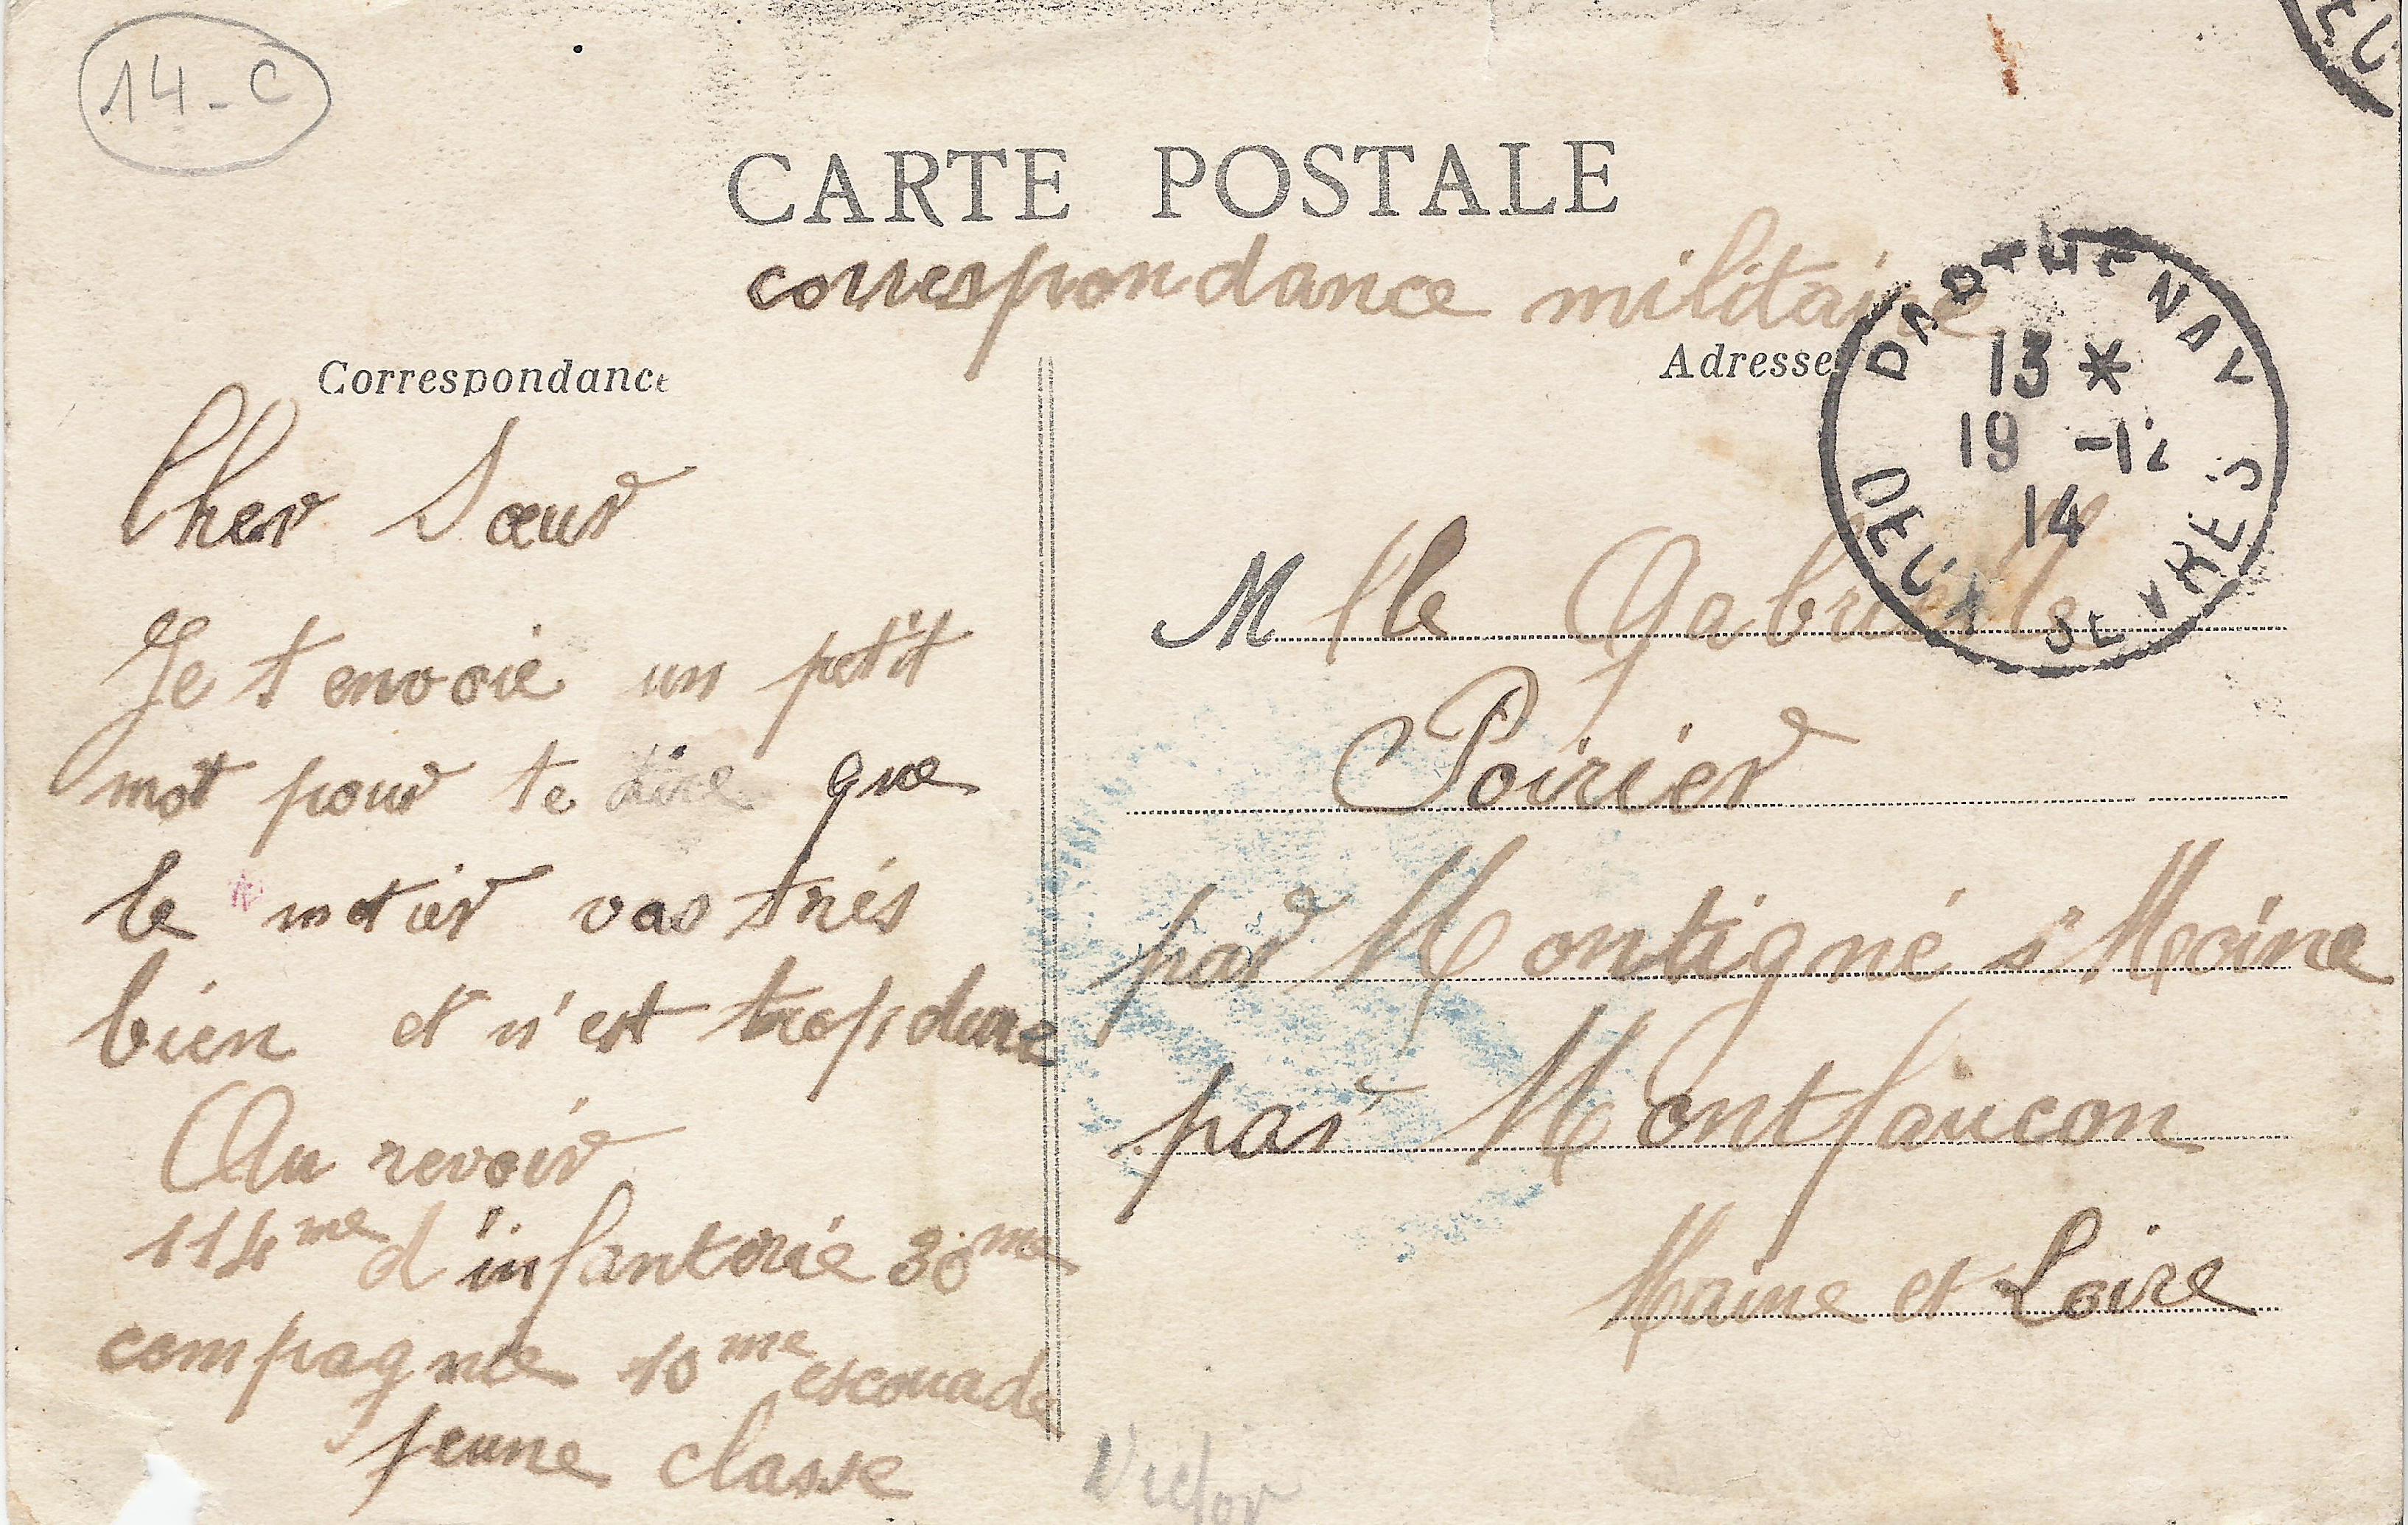 14-C
CARTE POSTALE
correspondance militaire
Correspondance
Adresse
PARTHENAY
13 *
19 -12
14
DEUX SEVRES
Cher Sœur
Je t envoie un petit
mot pour te dire que
le metier vas trés
bien et n'est trop dure
Au revoir
114me d'infanterie 30me
compagnie 10me escouade
jeune classe
Mlle Gabrielle
Poirier
par Montigné s' Moine
par Montfaucon
Maine et Loire
Victor